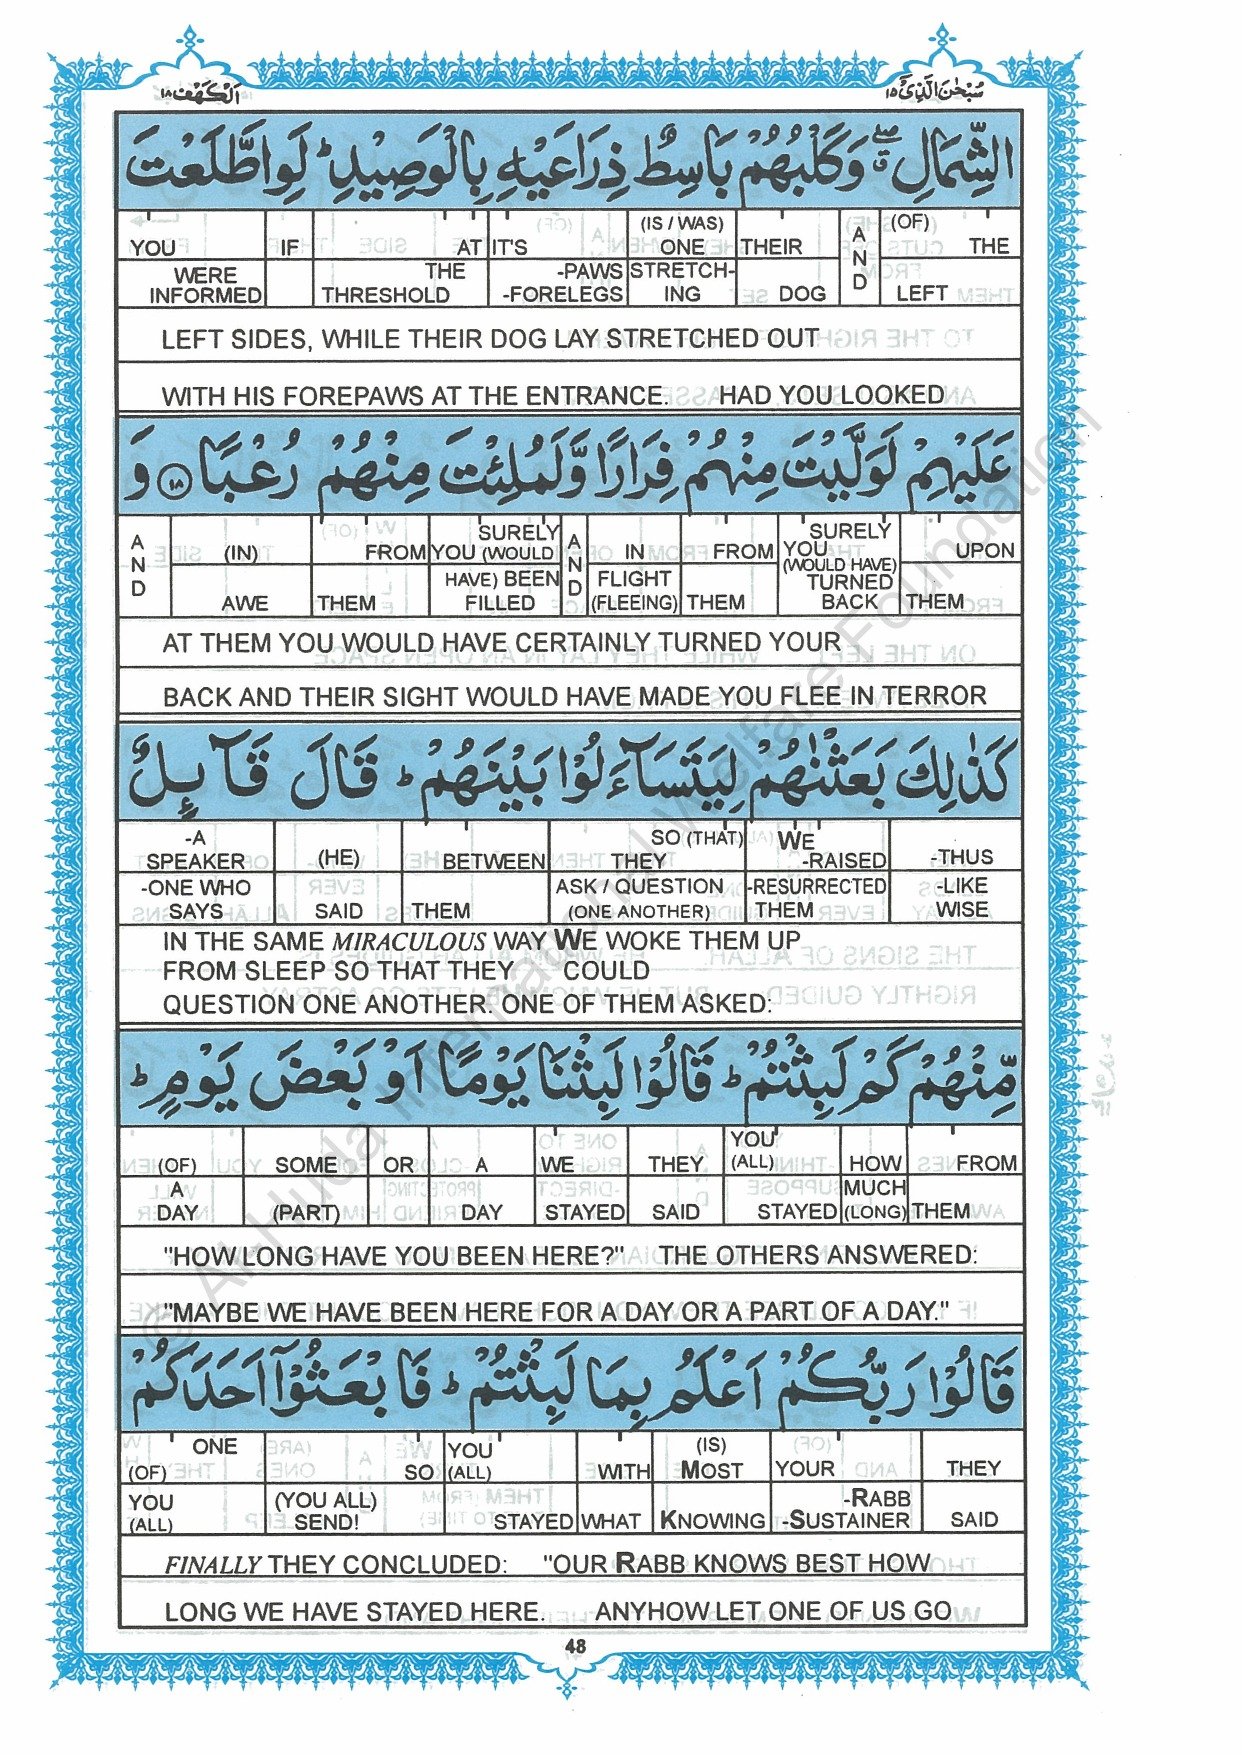 اَلْكَهْف ١٨ سُبْحٰنَ الَّذِیْۤ ١٥
الشِّمَالِ ۖۗ وَكَلْبُهُمْ بَاسِطٌ ذِرَاعَیْهِ بِالْوَصِیْدِ ؕ لَوِ اطَّلَعْتَ
YOU IF AT IT'S (IS / WAS) ONE THEIR AND (OF) THE
WERE INFORMED THE THRESHOLD -PAWS -FORELEGS STRETCH-ING DOG LEFT
LEFT SIDES, WHILE THEIR DOG LAY STRETCHED OUT
WITH HIS FOREPAWS AT THE ENTRANCE. HAD YOU LOOKED
عَلَیْهِمْ لَوَلَّیْتَ مِنْهُمْ فِرَارًا وَّلَمُلِئْتَ مِنْهُمْ رُعْبًا ١٨ وَ
AND (IN) FROM SURELY YOU (WOULD AND IN FROM SURELY YOU (WOULD HAVE) UPON
AWE THEM HAVE) BEEN FILLED FLIGHT (FLEEING) THEM TURNED BACK THEM
AT THEM YOU WOULD HAVE CERTAINLY TURNED YOUR
BACK AND THEIR SIGHT WOULD HAVE MADE YOU FLEE IN TERROR
كَذٰلِكَ بَعَثْنٰهُمْ لِیَتَسَآءَلُوْا بَیْنَهُمْ ؕ قَالَ قَآىِٕلٌ
-A SPEAKER (HE) BETWEEN SO (THAT) THEY WE -RAISED -THUS
-ONE WHO SAYS SAID THEM ASK / QUESTION (ONE ANOTHER) -RESURRECTED THEM -LIKE WISE
IN THE SAME MIRACULOUS WAY WE WOKE THEM UP
FROM SLEEP SO THAT THEY COULD
QUESTION ONE ANOTHER. ONE OF THEM ASKED:
مِّنْهُمْ كَمْ لَبِثْتُمْ ؕ قَالُوْا لَبِثْنَا یَوْمًا اَوْ بَعْضَ یَوْمٍ ؕ
(OF) SOME OR A WE THEY YOU (ALL) HOW FROM
A DAY (PART) DAY STAYED SAID STAYED MUCH (LONG) THEM
"HOW LONG HAVE YOU BEEN HERE?" THE OTHERS ANSWERED:
"MAYBE WE HAVE BEEN HERE FOR A DAY OR A PART OF A DAY."
قَالُوْا رَبُّكُمْ اَعْلَمُ بِمَا لَبِثْتُمْ ؕ فَابْعَثُوْۤا اَحَدَكُمْ
ONE (OF) SO YOU (ALL) WITH (IS) MOST YOUR THEY
YOU (ALL) (YOU ALL) SEND! STAYED WHAT KNOWING -RABB -SUSTAINER SAID
FINALLY THEY CONCLUDED: "OUR RABB KNOWS BEST HOW
LONG WE HAVE STAYED HERE. ANYHOW LET ONE OF US GO
48
© Al-Huda International Welfare Foundation